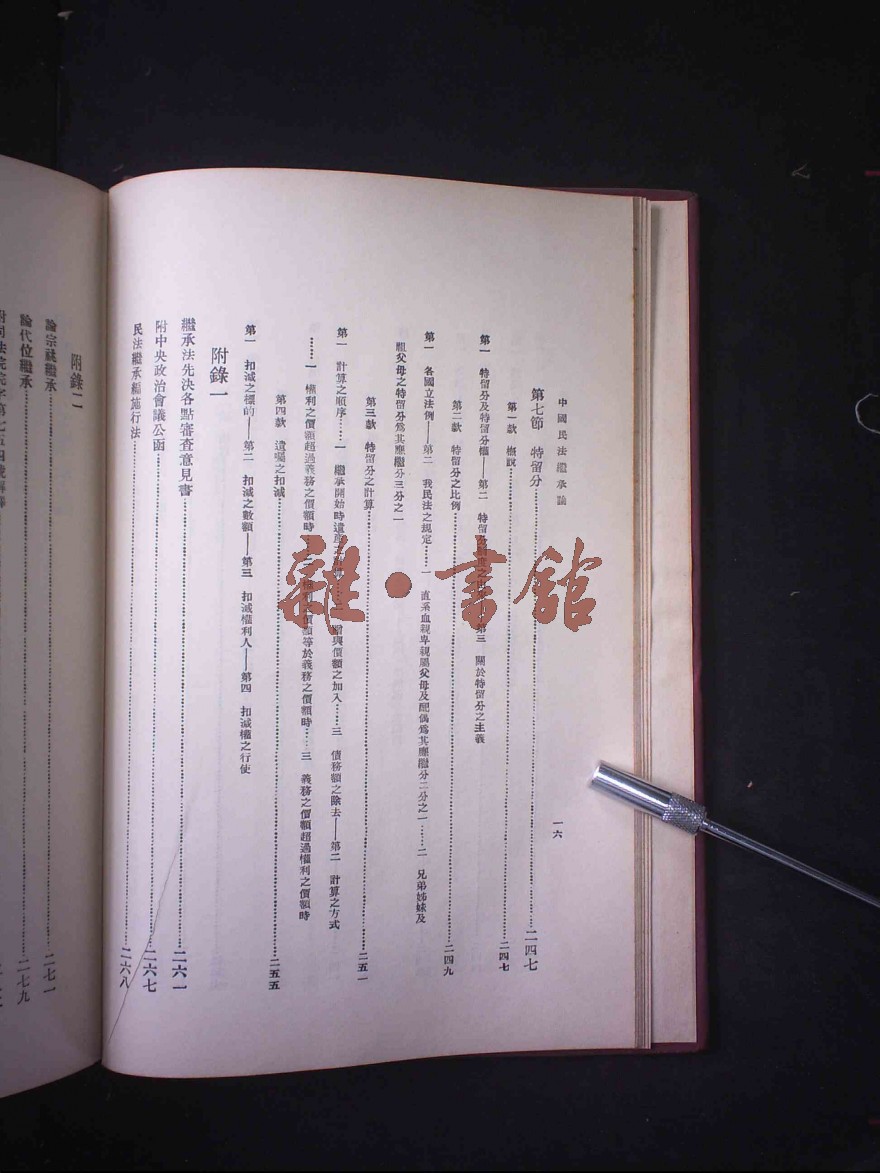 中國民法繼承論
一六
第七節 特留分……二四七
第一款 概說……二四七
第一 特留分及特留分權——第二 特留分制度之 第三 關於特留分之主義
第二款 特留分之比例……二四九
第一 各國立法例——第二 我民法之規定……一 直系血親卑親屬父母及配偶爲其應繼分二分之一……二 兄弟姊妹及
祖父母之特留分爲其應繼分三分之一
第三款 特留分之計算……二五一
第一 計算之順序……一 繼承開始時遺產之 ……二 贈與價額之加入……三 債務額之除去——第二 計算之方式
……一 權利之價額超過義務之價額時……二 權利之價額等於義務之價額時……三 義務之價額超過權利之價額時
第四款 遺囑之扣減……二五五
第一 扣減之標的——第二 扣減之數額——第三 扣減權利人——第四 扣減權之行使
附錄一
繼承法先決各點審查意見書……二六一
附中央政治會議公函……二六七
民法繼承編施行法……二六八
附錄二
論宗祧繼承……二七一
論代位繼承……二七九
雜·書館